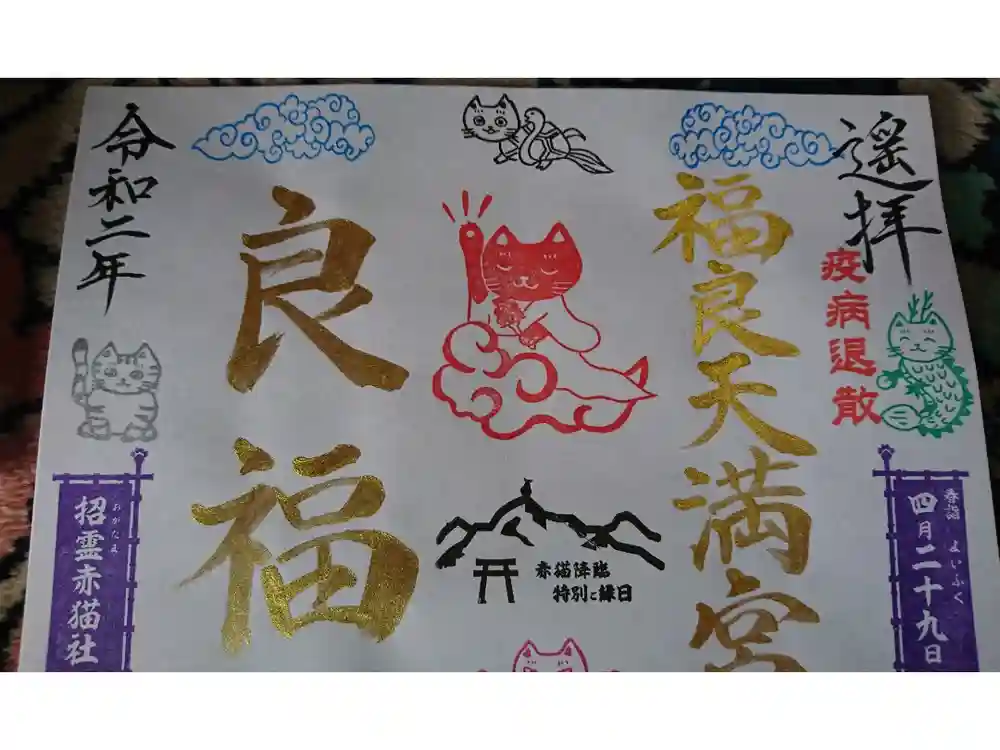 遥拝
疫病退散
春詣
四月二十九日
よいふく
福良天満宮
赤猫降臨
特別ご縁日
良福
令和二年
招霊赤猫社
おがたま